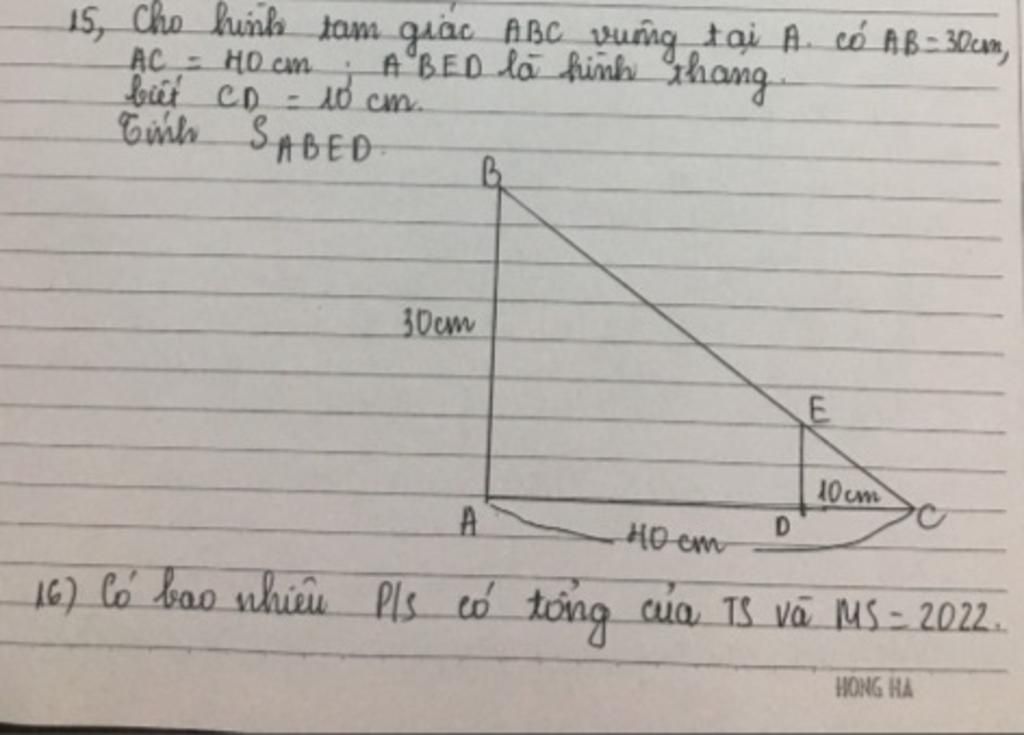 15, Cho hình tam giác ABC vuông tại A. có AB = 30cm,
AC = 40 cm ; ABED là hình thang.
biết CD = 10 cm.
Tính S ABED.
B
30cm
E
10cm
A
D
C
40 cm
16) Có bao nhiêu P/S có tổng của TS và MS = 2022.
HONG HA